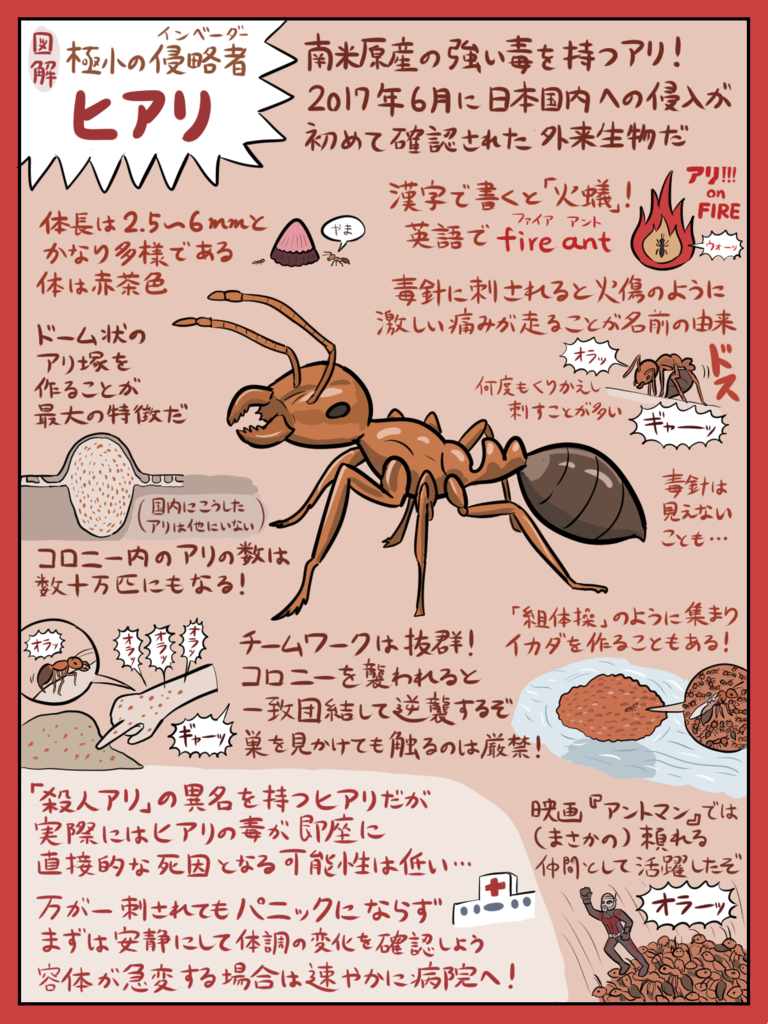 図解
極小の侵略者
インベーダー
ヒアリ
南米原産の強い毒を持つアリ!
2017年6月に日本国内への侵入が
初めて確認された外来生物だ
漢字で書くと「火蟻」!
英語で fire ant
ファイア アント
アリ!!!
on
FIRE
ウォーッ
体長は2.5〜6mmと
かなり多様である
体は赤茶色
やま
毒針に刺されると火傷のように
激しい痛みが走ることが名前の由来
オラッ
ドス
何度もくりかえし
刺すことが多い
ギャーッ
ドーム状の
アリ塚を
作ることが
最大の特徴だ
(国内にこうした
アリは他にいない)
毒針は
見えない
ことも…
コロニー内のアリの数は
数十万匹にもなる!
オラッ
オラッ
オラッ
オラッ
ギャーッ
チームワークは抜群!
コロニーを襲われると
一致団結して逆襲するぞ
巣を見かけても触るのは厳禁!
「組体操」のように集まり
イカダを作ることもある!
「殺人アリ」の異名を持つヒアリだが
実際にはヒアリの毒が即座に
直接的な死因となる可能性は低い…
万が一刺されてもパニックにならず
まずは安静にして体調の変化を確認しよう
容体が急変する場合は速やかに病院へ!
映画『アントマン』では
(まさかの)頼れる
仲間として活躍したぞ
オラーッ